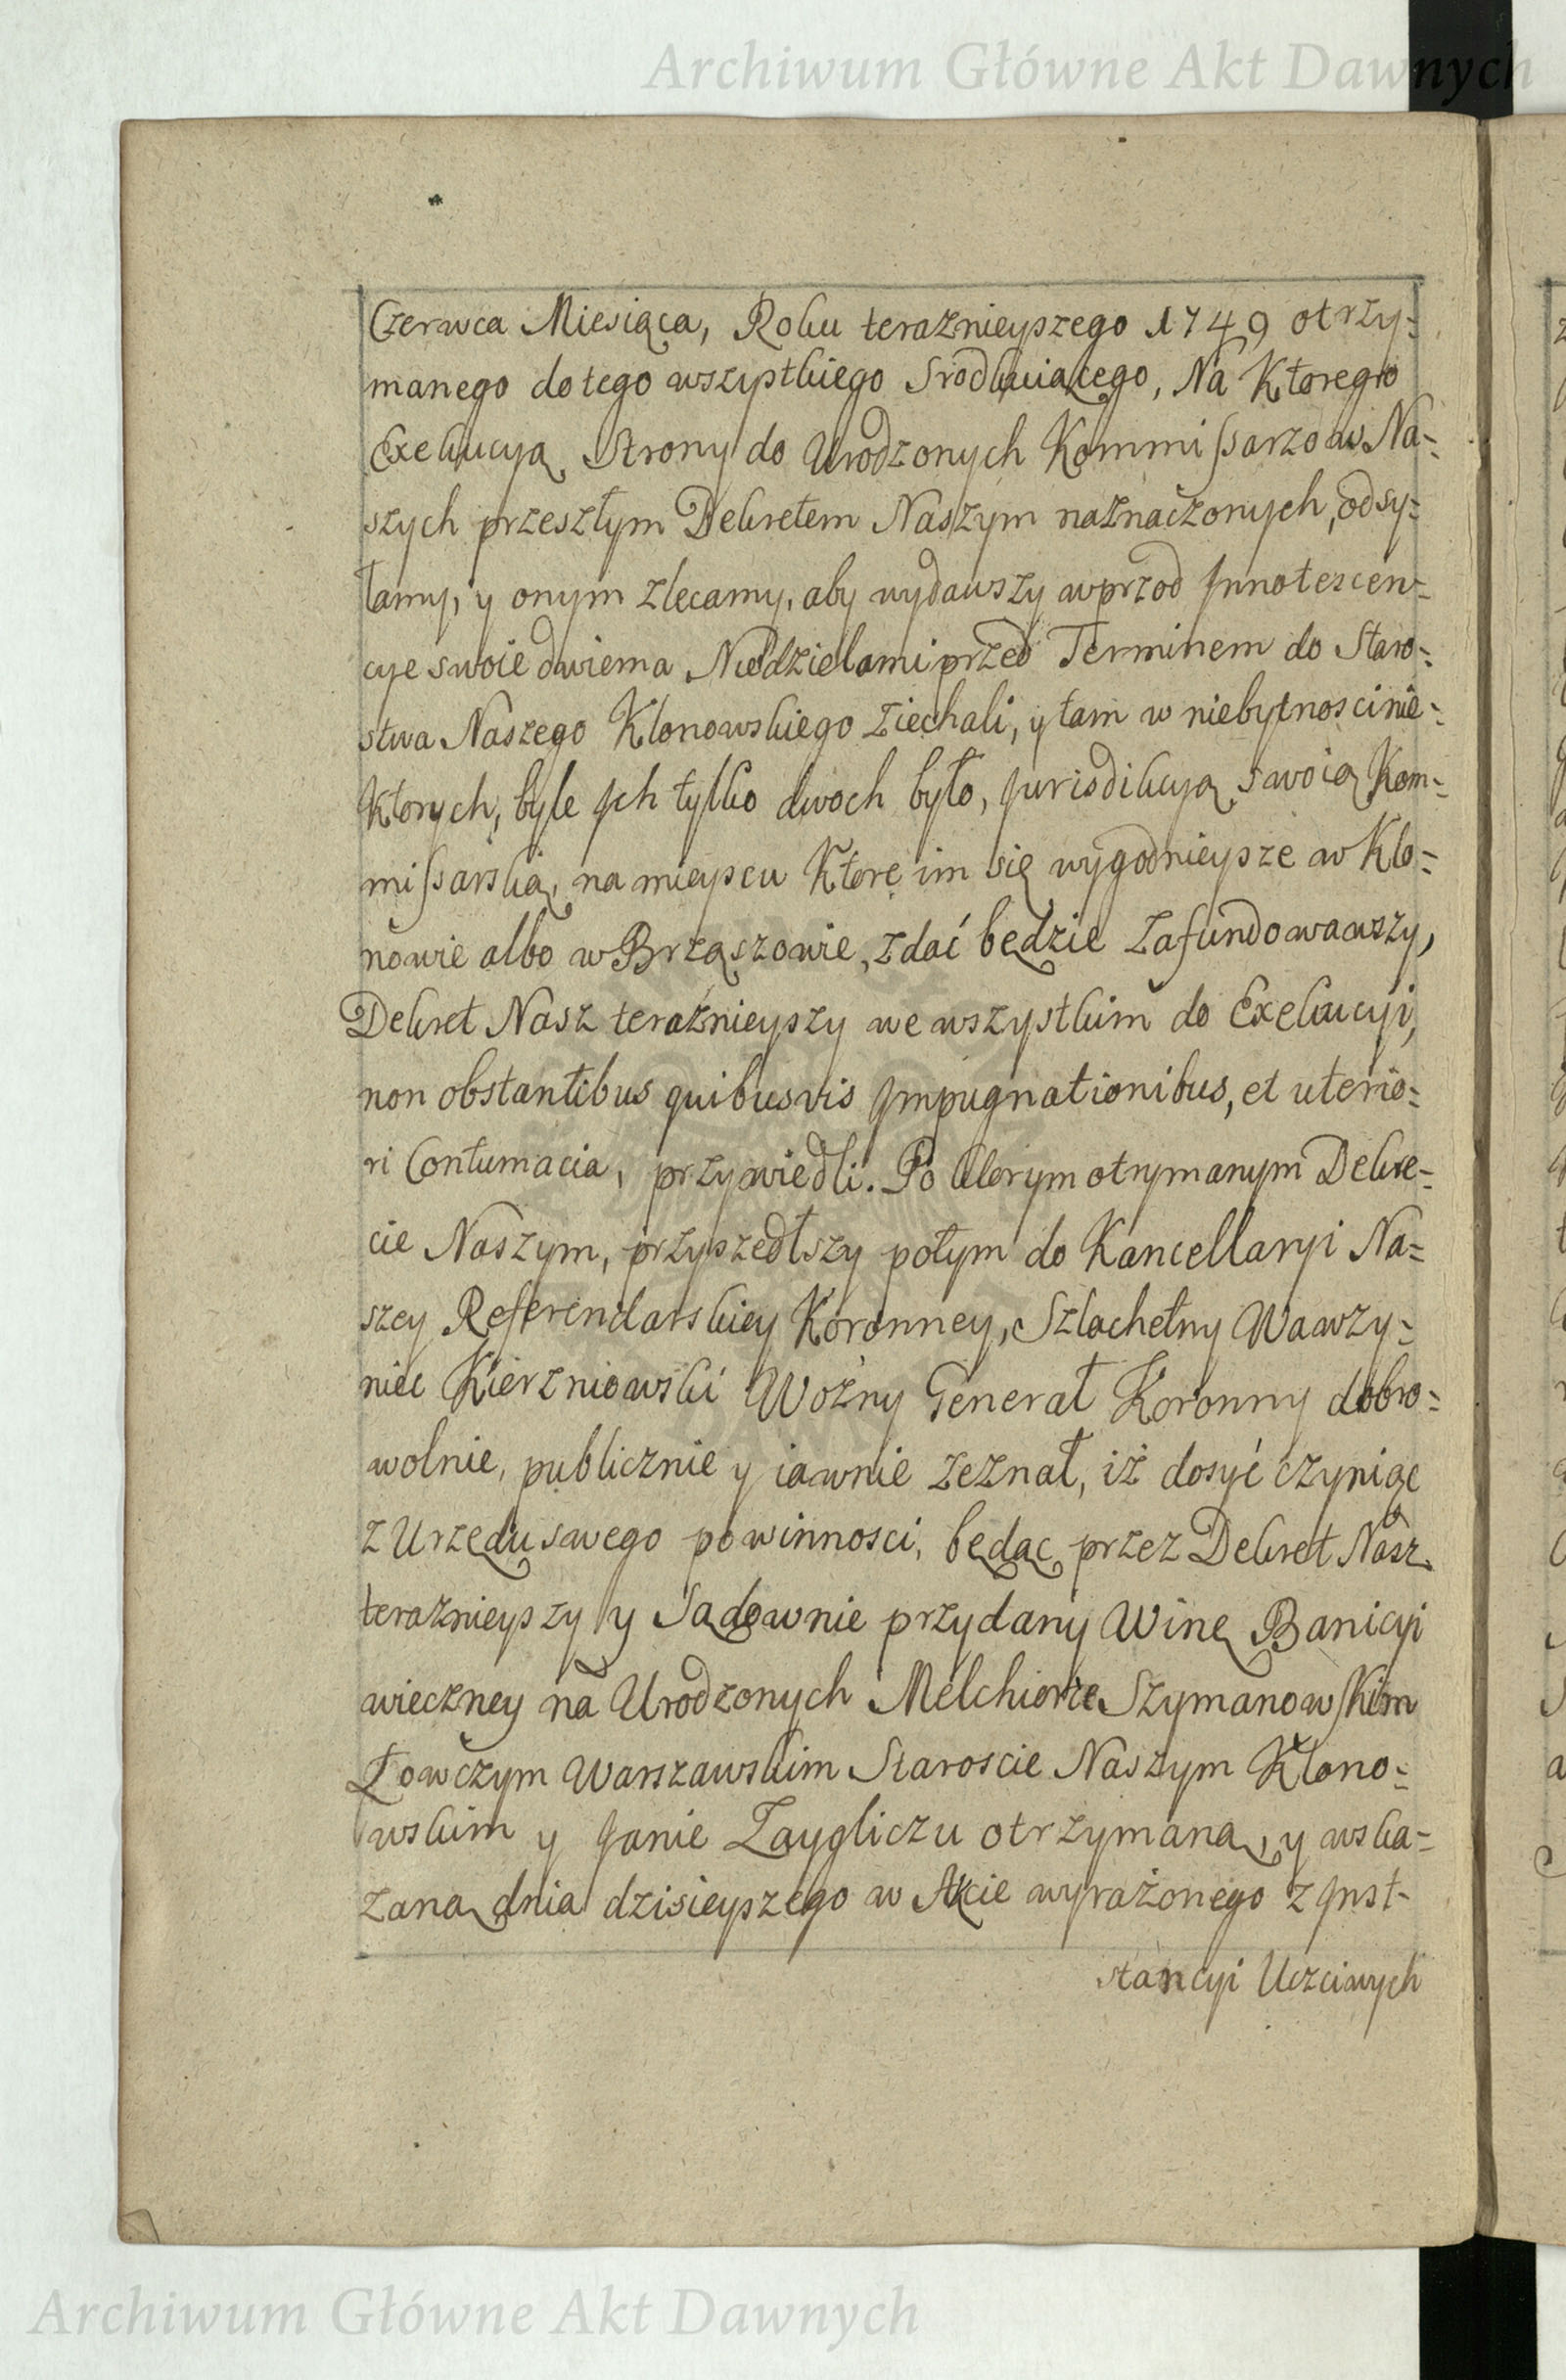 Archiwum Główne Akt Dawnych
Czerwca Miesiąca, Roku teraznieyszego 1749 otrzy=
manego do tego wszystkiego Srodkuiącego, Na Ktorego
Exekucyą Strony do Urodzonych Kommissarzow Na=
szych przeszłym Dekretem Naszym naznaczonych, odsy=
łamy, y onym zlecamy, aby wydawszy wprzod Jnnotescen=
cye swoie dwiema Niedzielami przed Terminem do Staro=
stwa Naszego Klonowskiego ziechali, y tam w niebytnosci nie=
Ktorych, byle Jch tylko dwoch było, Jurisdikcyą swoią Kom=
missarską, na mieyscu Ktore im się wygodnieysze w Klo=
nowie albo w Brząszowie, zdać będzie zafundowawszy,
Dekret Nasz teraznieyszy we wszystkim do Exekucyi,
non obstantibus quibusvis Jmpugnationibus, et uterio=
ri Contumacia, przywiedli. Po ktorym otrymanym Dekre=
cie Naszym, przyszedłszy potym do Kancellaryi Na=
szey Referendarskiey Koronney, Szlachetny Wawrzy=
niec Kierzniowski Woźny Generał Koronny dobro=
wolnie, publicznie y iawnie zeznał, iż dosyć czyniąc
z Urzędu swego powinnosci, będąc przez Dekret Nasz
teraznieyszy y Sądownie przydany Winę Banicyi
wieczney na Urodzonych Melchiorze Szymanowskim
Łowczym Warszawskim Staroscie Naszym Klono=
wskim y Janie Zaygliczu otrzymaną, y wska=
zaną dnia dzisieyszego w Akcie wyrażonego z Jnst-
stancyi Uczciwych
Archiwum Główne Akt Dawnych